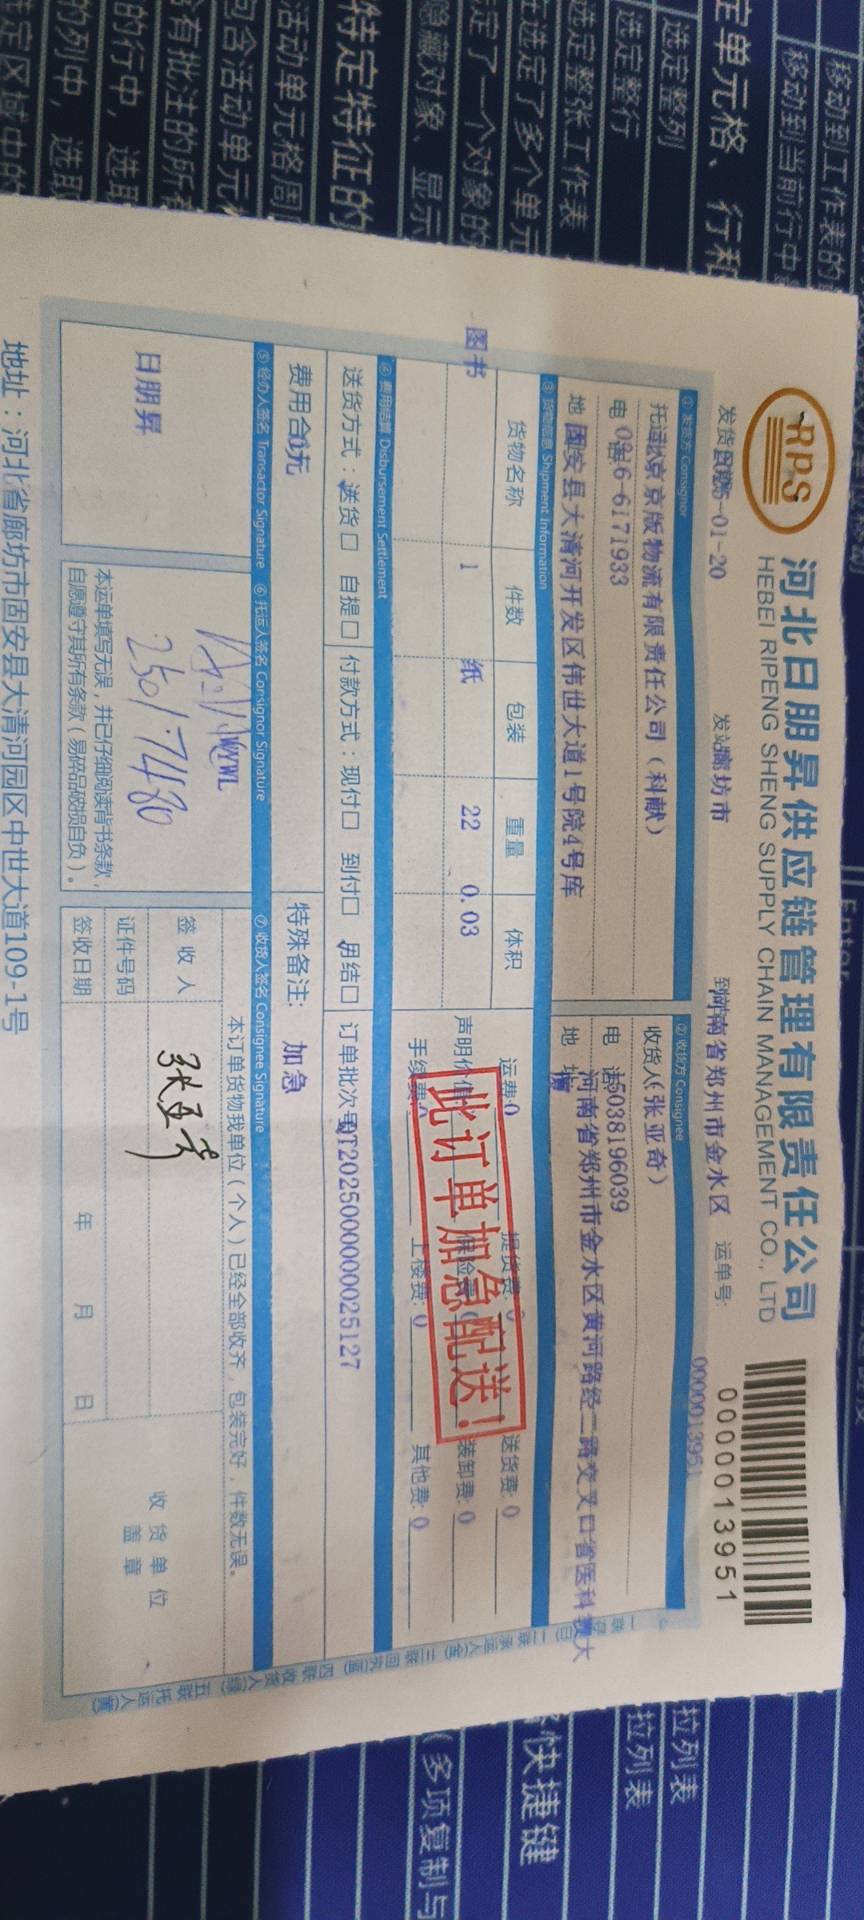 移动到工作表的
移动到当前行中
定单元格、行和
选定整列
选定整行
选定整张工作表
在选定了多个单元
定了一个对象的
隐藏对象、显示
特定特征的
活动单元格周
包含活动单元
有批注的所有
的行中，选取
的列中，选取
定区域中的
Enter
RPS
河北日朋昇供应链管理有限责任公司
HEBEI RIPENG SHENG SUPPLY CHAIN MANAGEMENT CO., LTD
0000013951
0000013951
发货日期 -01-20 发站 廊坊市 到 河南省郑州市金水区 运单号:
① 发货方 Consignor ② 收货方 Consignee
托运 北京京版物流有限责任公司（科献） 收货人（张亚奇）
电话 0316-6171933 电话 15038196039
地 固安县大清河开发区伟世大道1号院4号库 地址 河南省郑州市金水区黄河路经二路交叉口省医科教大
楼
③ 货物信息 Shipment Information
货物名称 件数 包装 重量 体积 运费:0 提货费:0 送货费:0
图书 1 纸 22 0.03 声明价值 保险费:0 装卸费:0
手续费:0 上楼费:0 其他费:0
此订单加急配送！
④ 费用结算 Disbursement Settlement
送货方式：送货□ 自提□ 付款方式：现付□ 到付□ 月结□ 订单批次号 DT20250000000025127
费用合 0元 特殊备注: 加急
⑤ 经办人签名 Transactor Signature ⑥ 托运人签名 Consignor Signature ⑦ 收货人签名 Consignee Signature
日朋昇
WYWL
250/7480
本运单填写无误，并已仔细阅读背书条款，
自愿遵守其所有条款（易碎品破损自负）。
本订单货物我单位（个人）已经全部收齐，包装完好，件数无误。
签收人 张亚奇
证件号码
签收日期 年 月 日
收货单位
盖章
二联承运人(金) 三联回执(蓝) 四联收货人(绿) 五联托运人(黄)
地址：河北省廊坊市固安县大清河园区中世大道109-1号
拉列表
拉列表
快捷键
（多项复制与